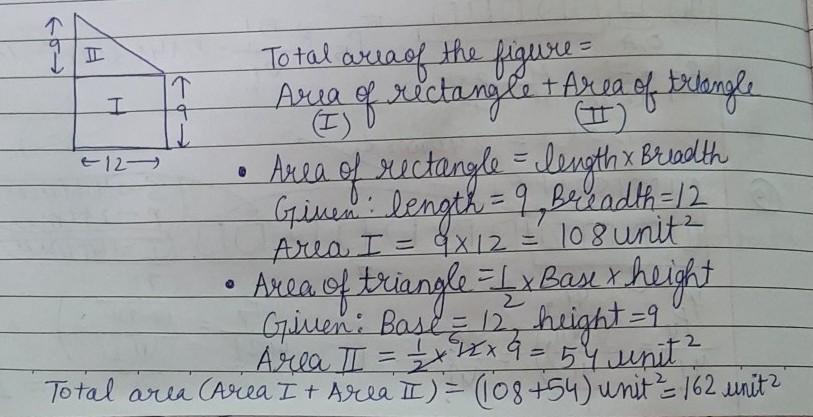 9
II
I
9
←12→
Total area of the figure=
Area of rectangle + Area of triangle
(I) (II)
• Area of rectangle = length × Breadth
Given: length = 9, Breadth = 12
Area I = 9×12 = 108 unit²
• Area of triangle = 1/2 × Base × height
Given: Base = 12, height = 9
Area II = 1/2 × 12 6 × 9 = 54 unit²
Total area (Area I + Area II) = (108+54) unit² = 162 unit²